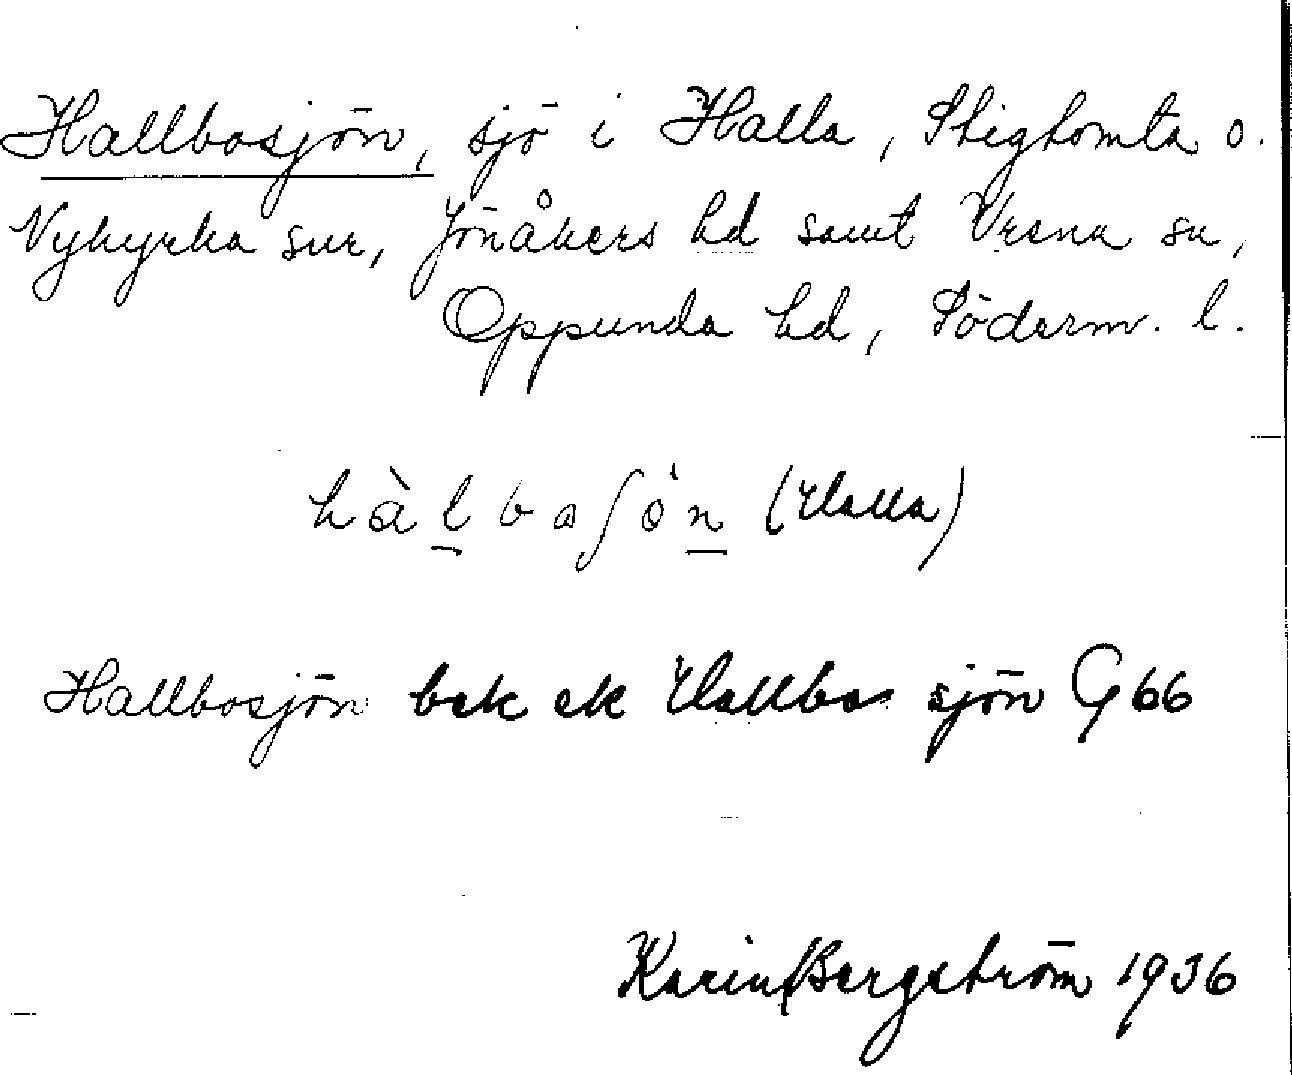 Hallbosjön, sjö i Halla, Stigtomta o.
Nykyrka snr, Jönåkers hd samt Vrena sn,
Oppunda hd, Söderm. l.
hàlbaʃö̀n (Halla)
Hallbosjön bek ek Hallbo sjön G 66
Karin Bergström 1936